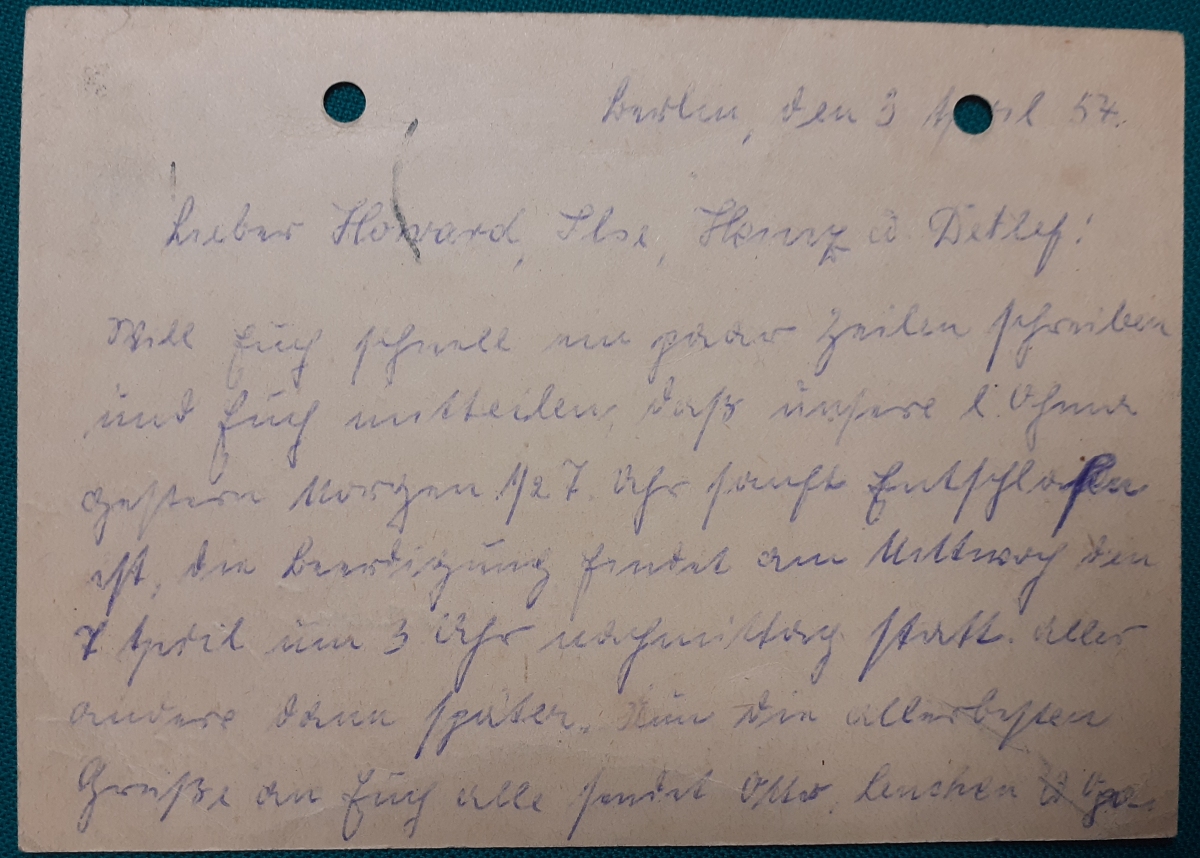 Berlin, den 3 April 54.
Lieber Howard, Ilse, Heinz ü Detlef!
Will Euch schnell ein paar Zeilen schreiben
und Euch mitteilen, daß unsere l. Ohma
gestern Morgen 1/2 7. Uhr sanft Entschlafen
ist, die Beerdigung findet am Mittwoch den
7 April um 3 Uhr nachmittag statt. alles
andere dann später. Nun die allerbesten
Grüße an Euch alle sendet Otto, Lenchen